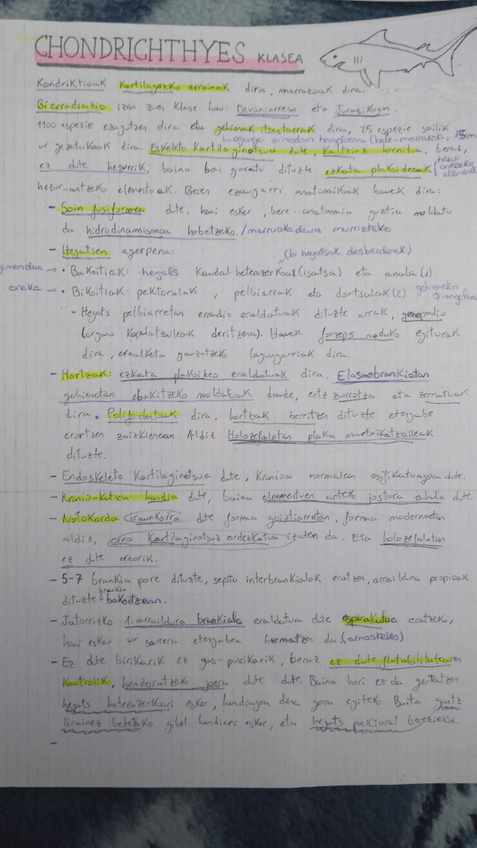 CHONDRICHTHYES KLASEA
Kondriktioak kartilagozko arrainak dira, marrazoak dira.
Bi erradiazio izan zuen klase hau: Devoniarrean eta Jurasikoan.
1100 espezie ezagutzen dira eta gehienak itsastarrak dira, 25 espezie soilik
ur gezatakoak dira. Eskeleto kartilaginotsua dute, kaltzio hornitua, beraz,
ez dute hezurrik, baina bai garatu dituzte ezkata plakoideoak
hezur-antzeko elementuak. Beren ezaugarri anatomikoak hauek dira:
- Soin fusiformea dute, honi esker, bere anatomia guztia moldatu
da hidrodinamismoa hobetzeko. / marruskadura murrizteko
- Hegatsen agerpena: (bi hegalenak desberdinak)
• Bakoitiak: hegats kaudal heterozerkoa (isatsa) eta anala (1)
oreka → • Bikoitiak: pektoralak, pelbiarrak eta dortsalak (2) gehienetan
- Hegats pelbiarretan erradio eraldatuak dituzte arrak,
(organo kopulatzaileak deritzona). Hauek forzeps moduko egiturak
dira, ernalketa gauzatzeko lagungarriak dira.
- Hortzak: ezkata plakoideo eraldatuak dira. Elasmobrankioetan
gehienetan ebakitzeko moldatuak daude, ertz zorrotza eta zerratuak
dira. Polifiodontoak dira, hortzak berritzen dituzte etengabe
erortzen zaizkienean. Aldiz Holozefaloetan plaka murtxikatzaileak
dituzte.
- Endoskeleto kartilaginotsua dute, kranioa normalean osifikatugabea dute.
- Kranio-kutxa handia dute, baina elementuen arteko jostura ahula dute.
- Notokorda iraunkorra dute forma goiztiarretan, forma modernoetan
aldiz, orno kartilaginotsuz ordezkatua izaten da. Eta holozefaloetan
ez dute ornorik.
- 5-7 brankia pare dituzte, septu interbrankialak eratzen, arraildura propioak
dituzte brankia bakoitzean.
- Jatorrizko 1. arraildura brankiala eraldatua dute espirakulua eratzeko,
honi esker ur sarrera etengabea bermatzen da (arnasteko)
- Ez dute birikarik ez gas-puxikarik, beraz ez dute flotabilitatearen
kontrolik, hondoratzeko joera dute. Baina hori ez da gertatzen
hegats heterozerkoari esker, hondoan dena gora egiteko. Baita
gibel handiari esker, eta hegats pektoral bereziekin.
-